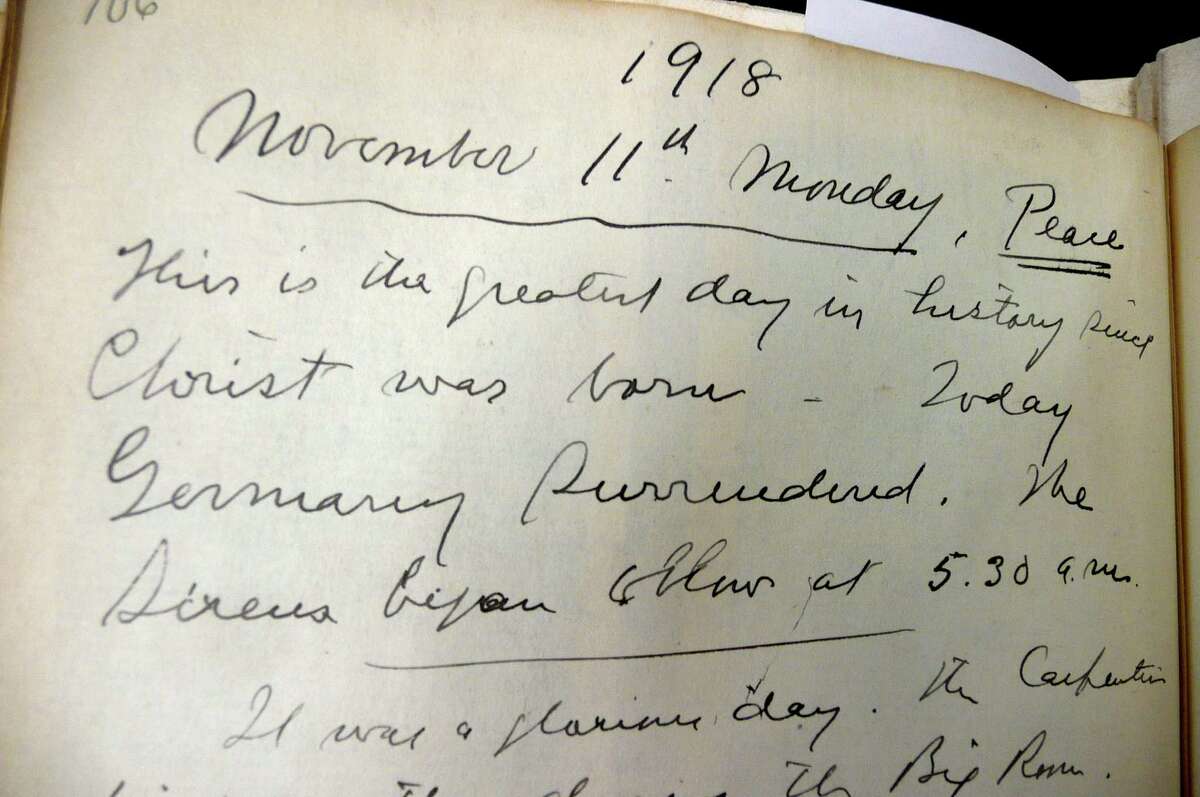 106
1918
November 11th Monday, Peace
This is the greatest day in history since
Christ was born - Today
Germany Surrendered. The
Sirens began to Blow at 5.30 a.m.
It was a glorious day. The Carpenters
The Big Room.